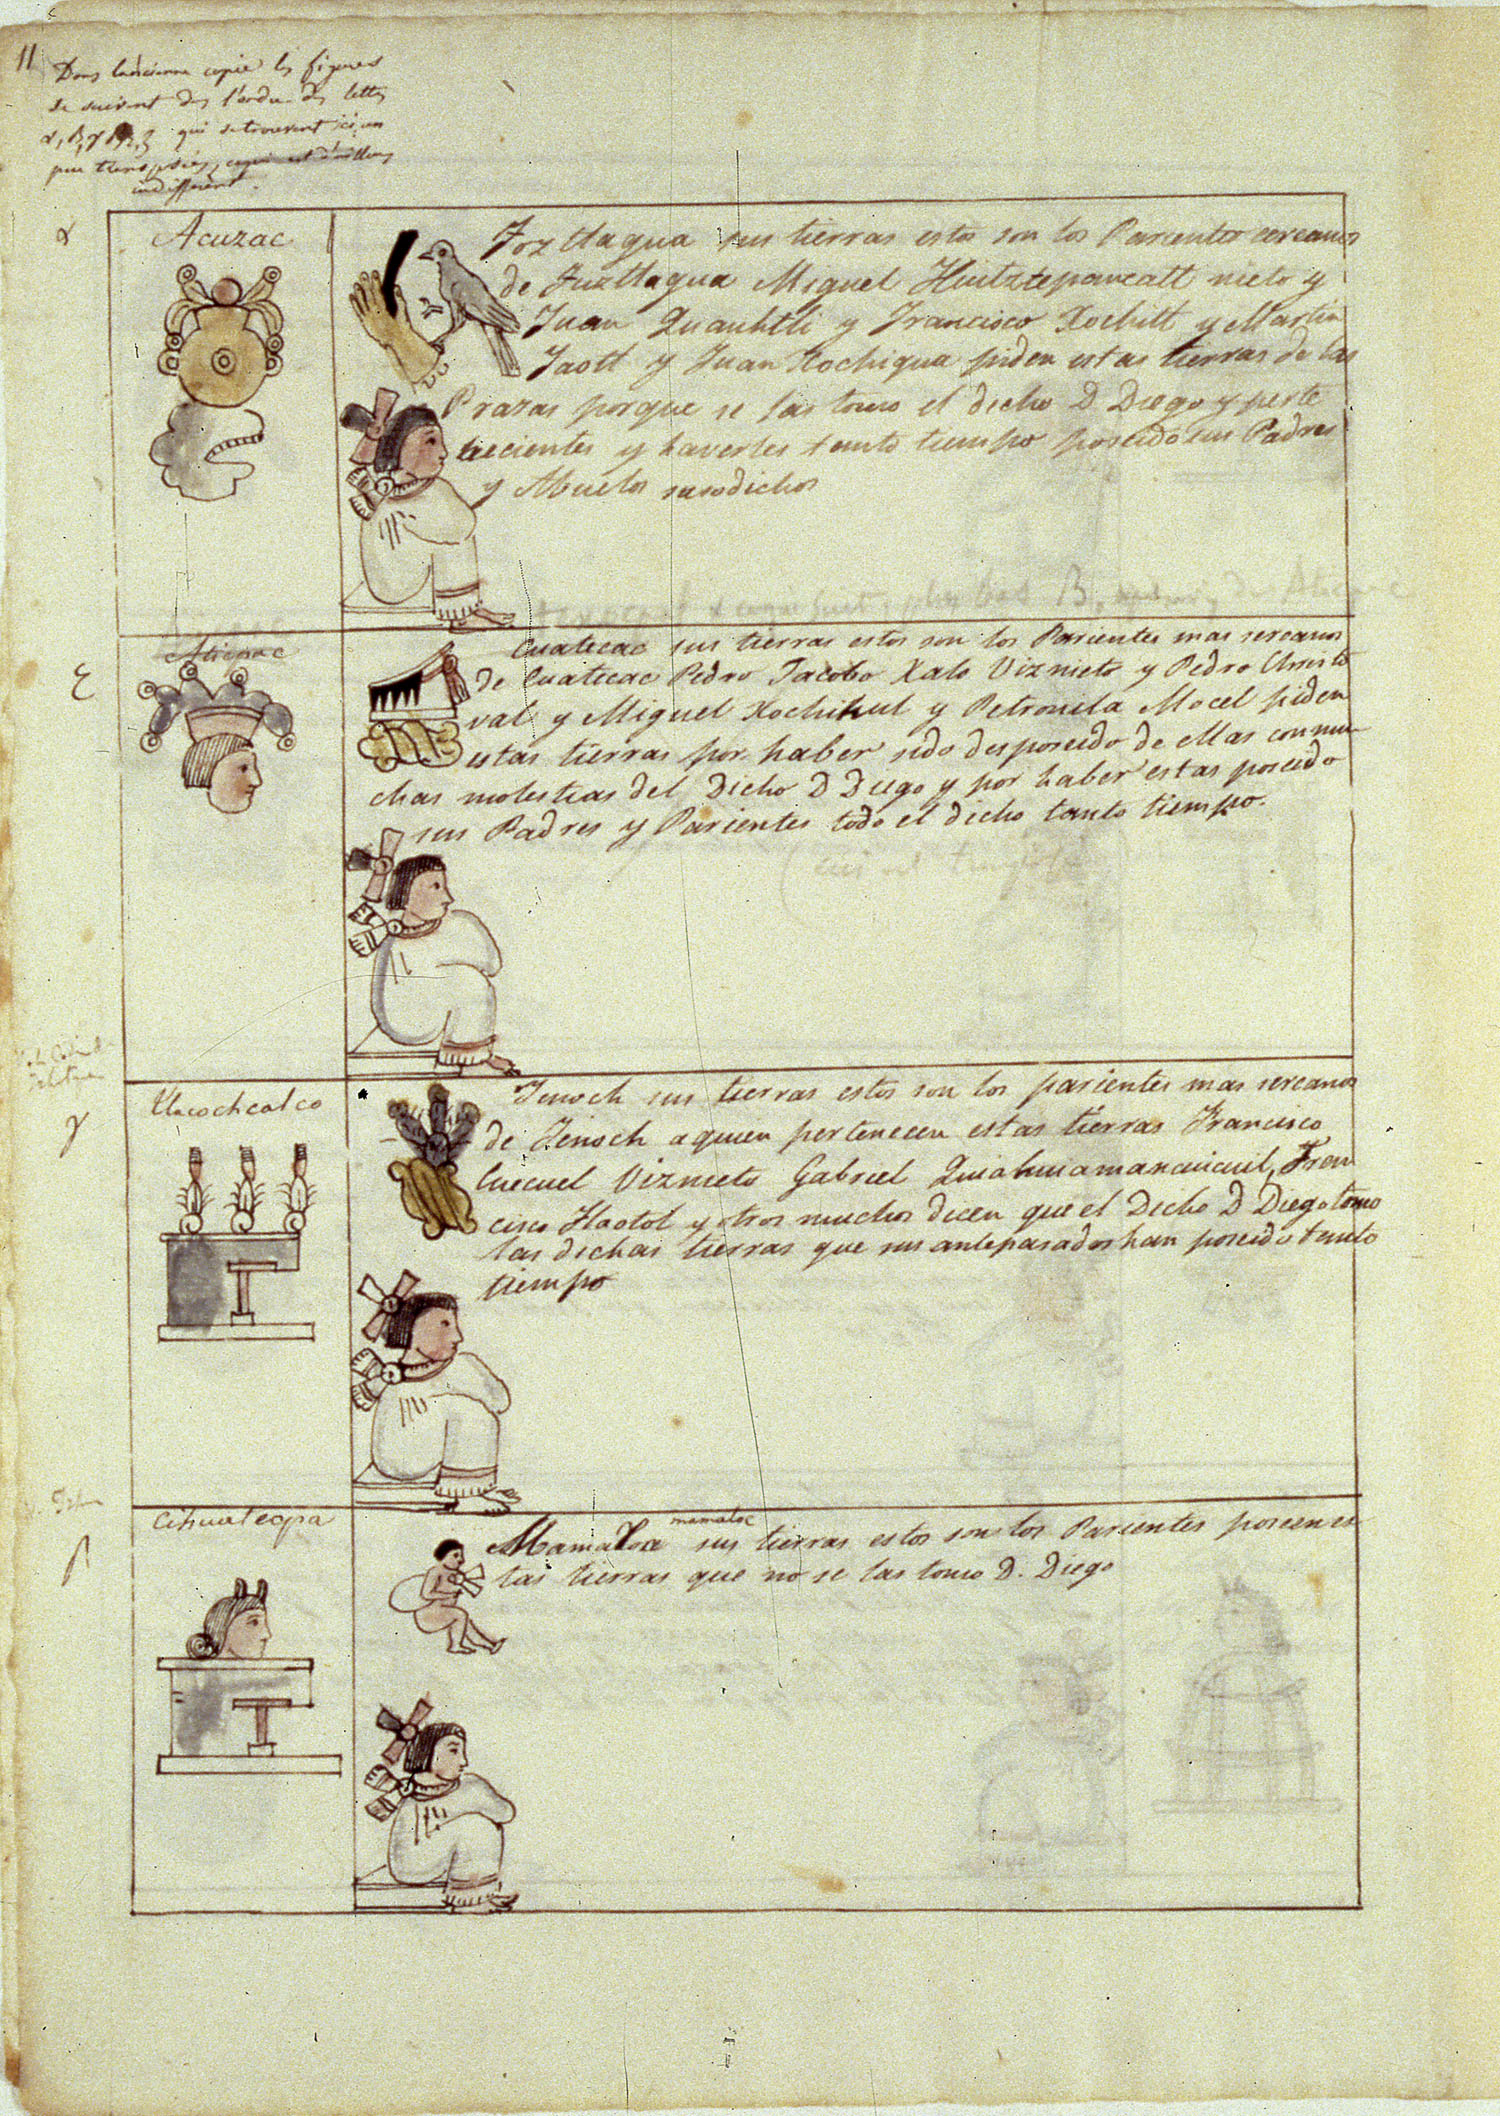 11
Dans l'ancienne copie les figures
se suivent dans l'ordre des lettres
α, β, γ qui se trouvent ici un
peu transposées,
indifférent.
α
Acuzac
Toztlagua sus tierras estos son los Parientes cercanos
de Tuztlagua Miguel Huitztepaucatl nieto y
Juan Quauhtli y Francisco Xochitl y Martin
Jaotl y Juan Xochiqua piden estas tierras de las
Prazas porque se las tomo el dicho D. Diego y perte
necientes y haverles tanto tiempo poseido sus Padres
y Abuelos susodichos
ε
Aticpac
Cuatecac sus tierras estos son los Parientes mas sercanos
de Cuatecac Pedro Jacobo Xalo Viznieto y Pedro Christo
val y Miguel Xochihul y Petronila Mocel piden
estas tierras por haber sido desposeido de ellas con mu
chas molestias del Dicho D Diego y por haber estas poseido
sus Padres y Parientes todo el dicho tanto tiempo.
γ
tlacochcalco
Tenoch sus tierras estos son los parientes mas sercanos
de Tenoch a quien pertenecen estas tierras Francisco
Cuecuel Viznieto Gabriel Quiahuiamancuicuil, Fran
cisco Xaotol y otros muchos dicen que el Dicho D Diego tomo
las dichas tierras que sus antepasados han poseido tanto
tiempo
β
Cihuatecpa
mamaloc
Mamaloa sus tierras estos son los Parientes poseen es
tas tierras que no se las tomo D. Diego